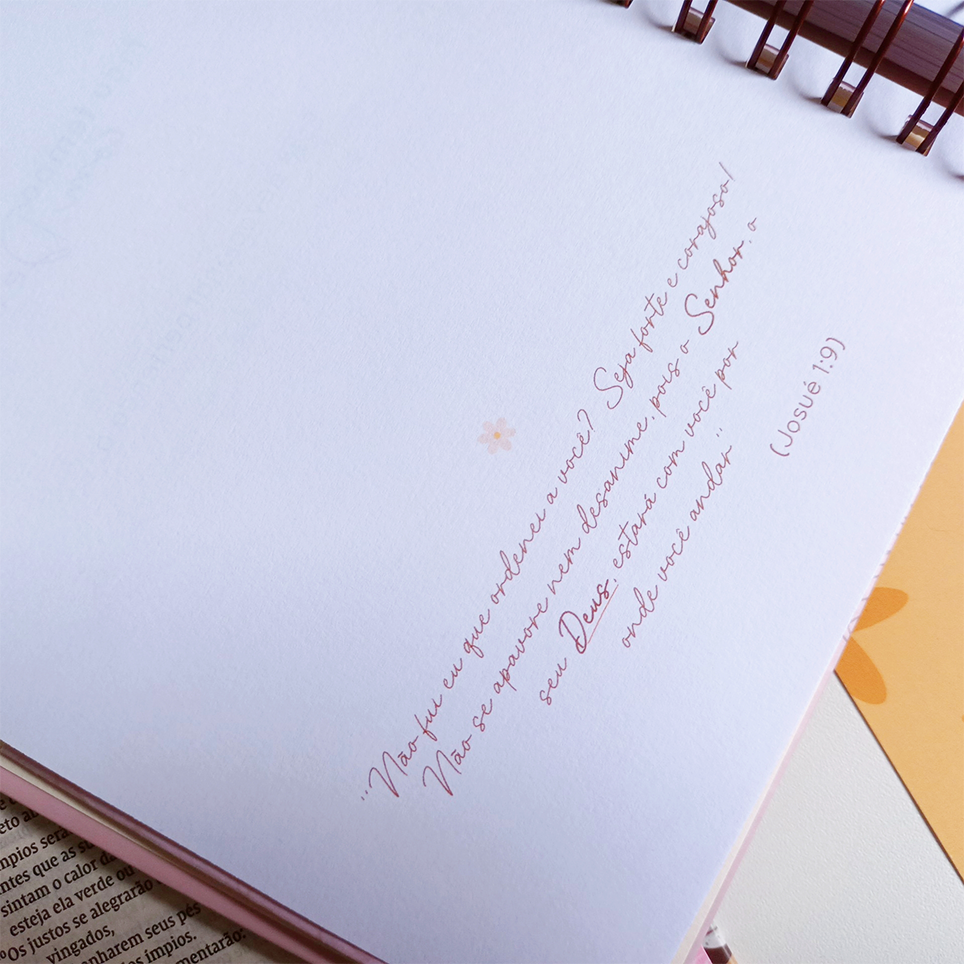 "Não fui eu que ordenei a você? Seja forte e corajoso!
Não se apavore nem desanime, pois o Senhor, o
seu Deus, estará com você por
onde você andar"
(Josué 1:9)
eto a
mpios será
ntes que as su
sintam o calor da
esteja ela verde ou
Os justos se alegrarão
vingados,
anharem seus pés
s ímpios.
mentarão: